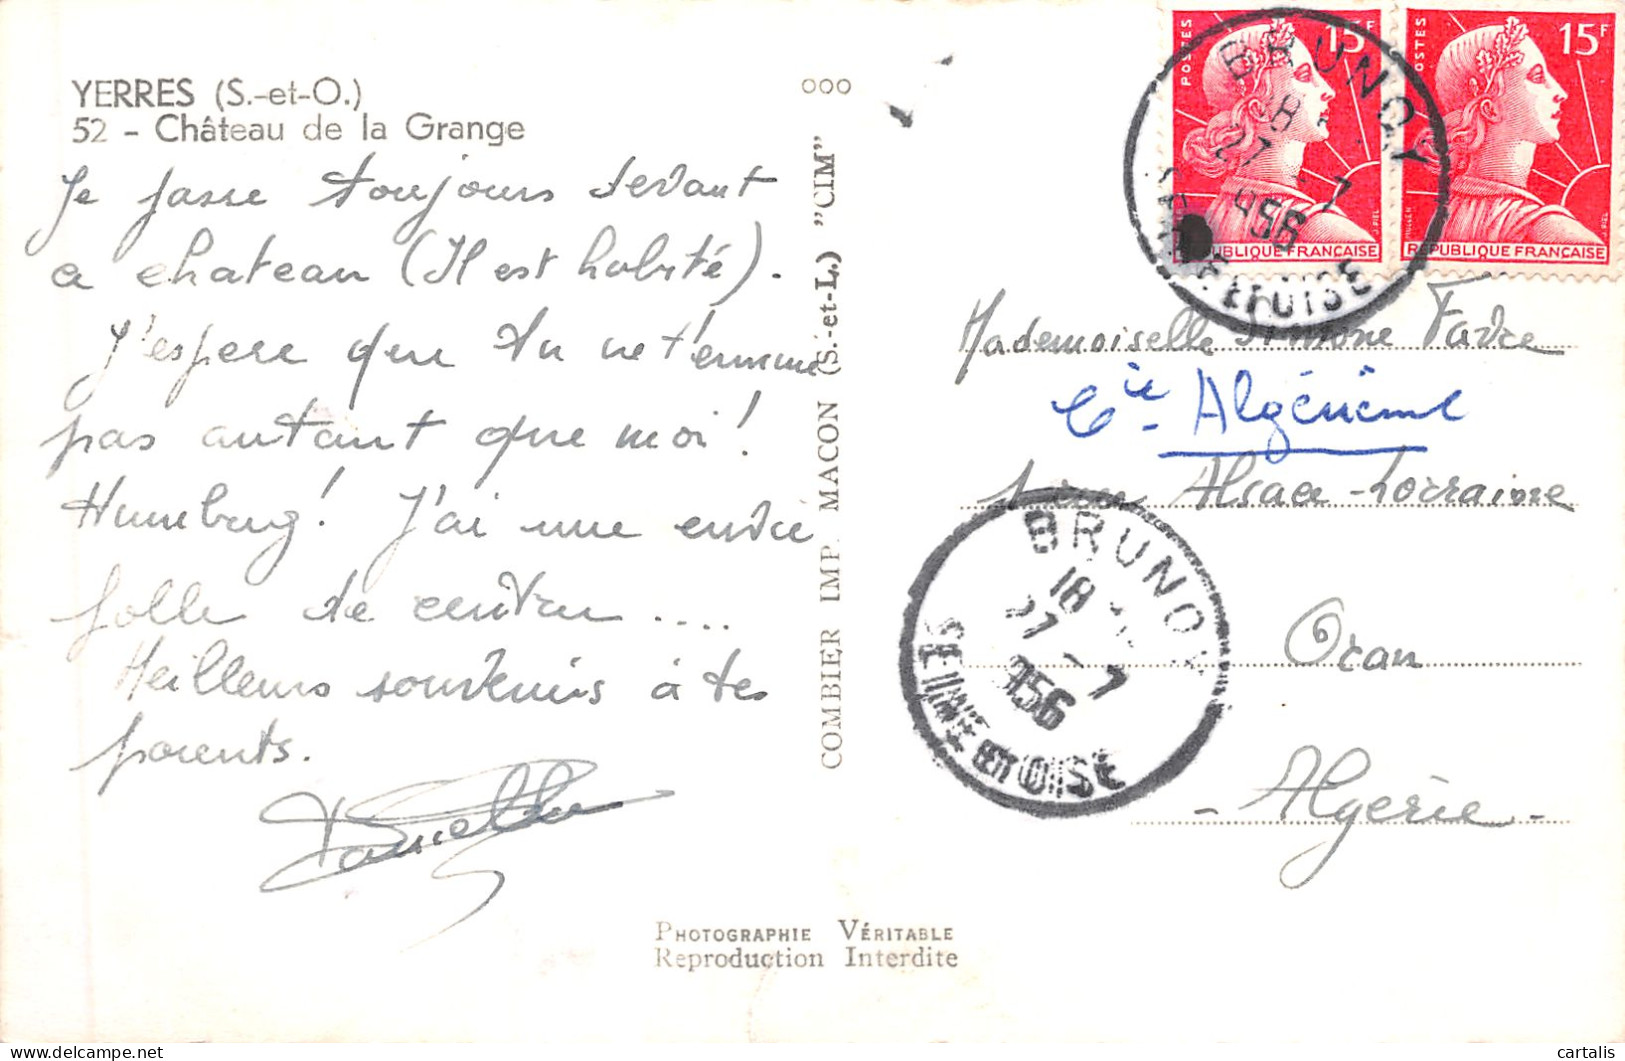 YERRES (S.-et-O.)
52 - Château de la Grange
Je passe toujours devant
ce chateau (Il est habité).
J'espere que tu ne t'ennuie
pas autant que moi!
Humebourg! J'ai une envie
folle de rentrer ....
Meilleurs souvenirs à tes
parents.
Danielle
ooo
COMBIER IMP. MACON (S.-et-L.) "CIM"
PHOTOGRAPHIE VÉRITABLE
Reproduction Interdite
POSTES 15F
RÉPUBLIQUE FRANÇAISE
POSTES 15F
MULLER J. PIEL
RÉPUBLIQUE FRANÇAISE
BRUNOY
18
27 - 7
1956
SEINE ET OISE
Mademoiselle Simone Favre
Cie Algérienne
Alsace-Lorraine
Oran
- Algerie -
BRUNOY
18
27 - 7
1956
SEINE ET OISE
cartalis
delcampe.net